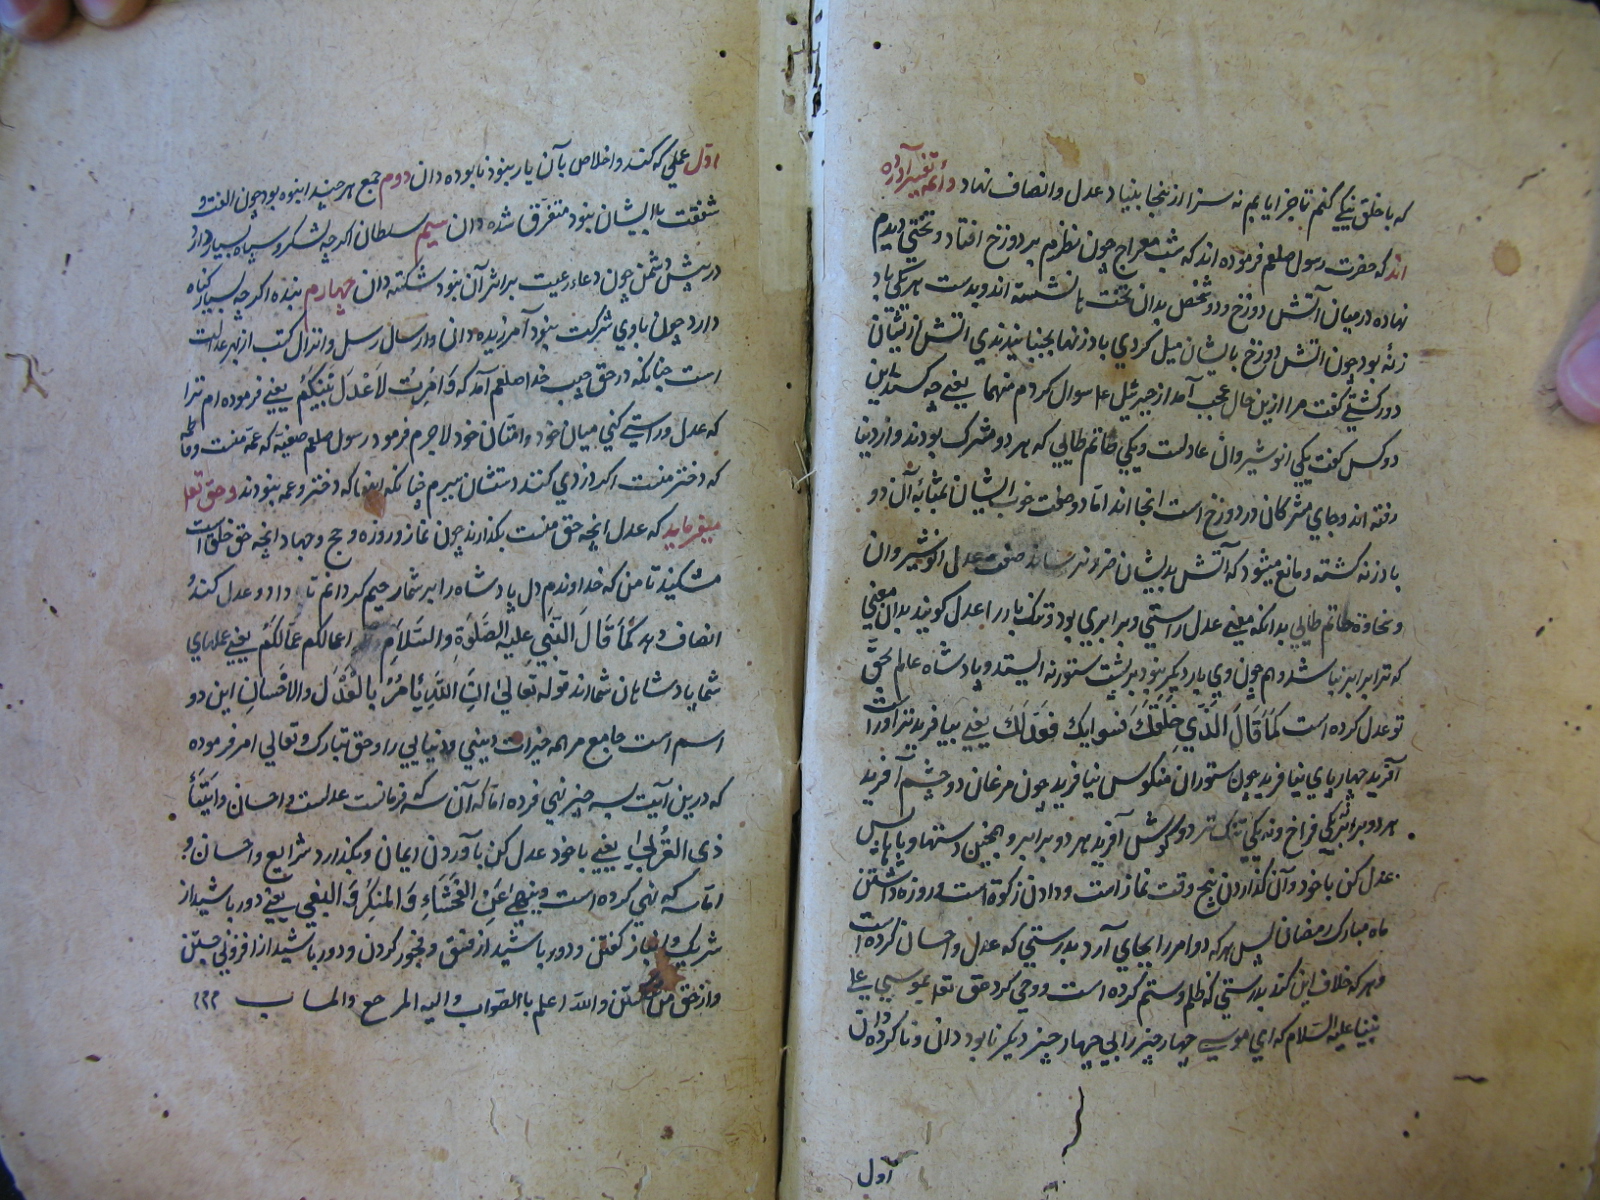 که با خلق نیکی کنم تا جزا یابم نه سزا از ینجا بنیاد عدل و انصاف نهاد و ائمه تفسیر آورده
اند که حضرت رسول صلعم فرموده اند که شب معراج چون نظرم بر دوزخ افتاد و تختی دیدم
نهاده در میان آتش دوزخ و دو شخص بدان تخت ها نشسته اند و بدست هر یکی باد
زنهٔ بود چون آتش دوزخ بایشان میل کردی بادزنها بجنبانیدندی آتش از یشان
دور کشتی کفت مرا ازین حال عجب آمد از جبرئیل ع سوال کردم منهما یعنی چه کسند این
دو کس کفت یکی انوشیروان عادلست و یکی حاتم طایی که هر دو مشرک بودند و از دنیا
رفته اند و جای مشرکان در دوزخ است اینجا اند اما دو صفت خوب ایشان بمثابهٔ آن دو
بادزنه کشته و مانع میشود که آتش بدیشان ضرر نرساند صفت عدل انوشیروان
و سخاوة حاتم طایی بدانکه معنی عدل راستی و برابری بود و تنک بار را عدل کویند بدان معنی
که ترا برابر نباشد و هم چون وی بار دیکر نبود بر پشت ستور نه ایستد و پادشاه عالم بحق
تو عدل کرده است کَمَا قَالَ الَّذَّي خَلَقَكَ فسوایك فَعَدَلَكَ یعنی بیافرید ترا و راست
آفرید چهار پای نیافرید چون ستوران منکوس نیافرید چون مرغان دو چشم آفرید
هر دو برابر یکی فراخ و نه یکی تنک تر دو کوش آفرید هر دو برابر و همچنین دستها و پاها پس
عدل کن با خود و آن کذاردن پنج وقت نماز است و دادن زکوة است و روزه داشتن
ماه مبارک رمضان پس هر که دو امر را بجای آرد بدرستی که عدل و احسان کرده است
و هر که خلاف این کند بدرستی که ظلم و ستم کرده است و وحی کرد حق تعلی بموسی علی
نبینا علیه السلام که ای موسی چهار چیز را بی چهار چیز دیکر نابود دان و ناکرده دان
اول
اول عملی که کنند و اخلاص بآن یار نبود نابوده دان دوم جمع هر چند انبوه بود چون الفت و
شفقت با ایشان نبود متفرق شده دان سیم سلطان اکرچه لشکر و سپاه بسیار دارد
در پیش دشمن چون دعاء رعیت بر اثر آن نبود شکسته دان چهارم بنده اکرچه بسیار کناه
دارد چون با وی شرکت نبود آمرزیده دان و ارسال رسل و انزال کتب از بهر عدالت
است چنانکه در حق حبیب خدا صلعم آمد که وَاُمِرتُ لاَعْدِلَ بَيْنَكُم یعنی فرموده ام ترا
که عدل و راستی کنی میان خود و امتان خود لاجرم فرمود رسول صلعم صفیه که عمه منست و فاطمه
که دختر منست اکر دزدی کنند دستشان ببرم چنانکه انها که دختر و عمه نبودند و حق تعلی
میفرماید که عدل انچه حق منست بکذارند چون نماز و روزه و حج و جهاد انچه حق خلق است
مشکنید تا من که خداوندم دل پادشاه را بر شما رحیم کردانم تا داد و عدل کند و
انصاف دهد کَمَا قَالَ النَّبِي عليه الصَّلَوٰةِ والسَّلاَم اعمالكم عُمَّالُكُم یعنی عملهای
شما پادشاهان شما اند قوله تعالی اِنَّ اللَّهَ يَأمُرُ بِالعَدْلِ والاحْسَانِ این دو
اسم است جامع مر همه خیرات دینی و دنیایی را و حق تبارک و تعالی امر فرموده
که درین آیت بسه چیز نهی کرده اما که آن سه که فرمانست عدلست و احسان و ایتَاءِ
ذي القُربَى یعنی با خود عدل کن بآوردن ایمان و بکذارد شرایع و احسان و
اما سه که نهی کرده است وينهى عَنِ الفَحْشَاءِ وَ المنكَرِ وَ البغي یعنی دور باشید از
شریک و انباز کفتن و دور باشید از فسق و فجور کردن و دور باشید از افزونی جستن
و از حق من والله اعلم باالصواب واليه المرجع والماب